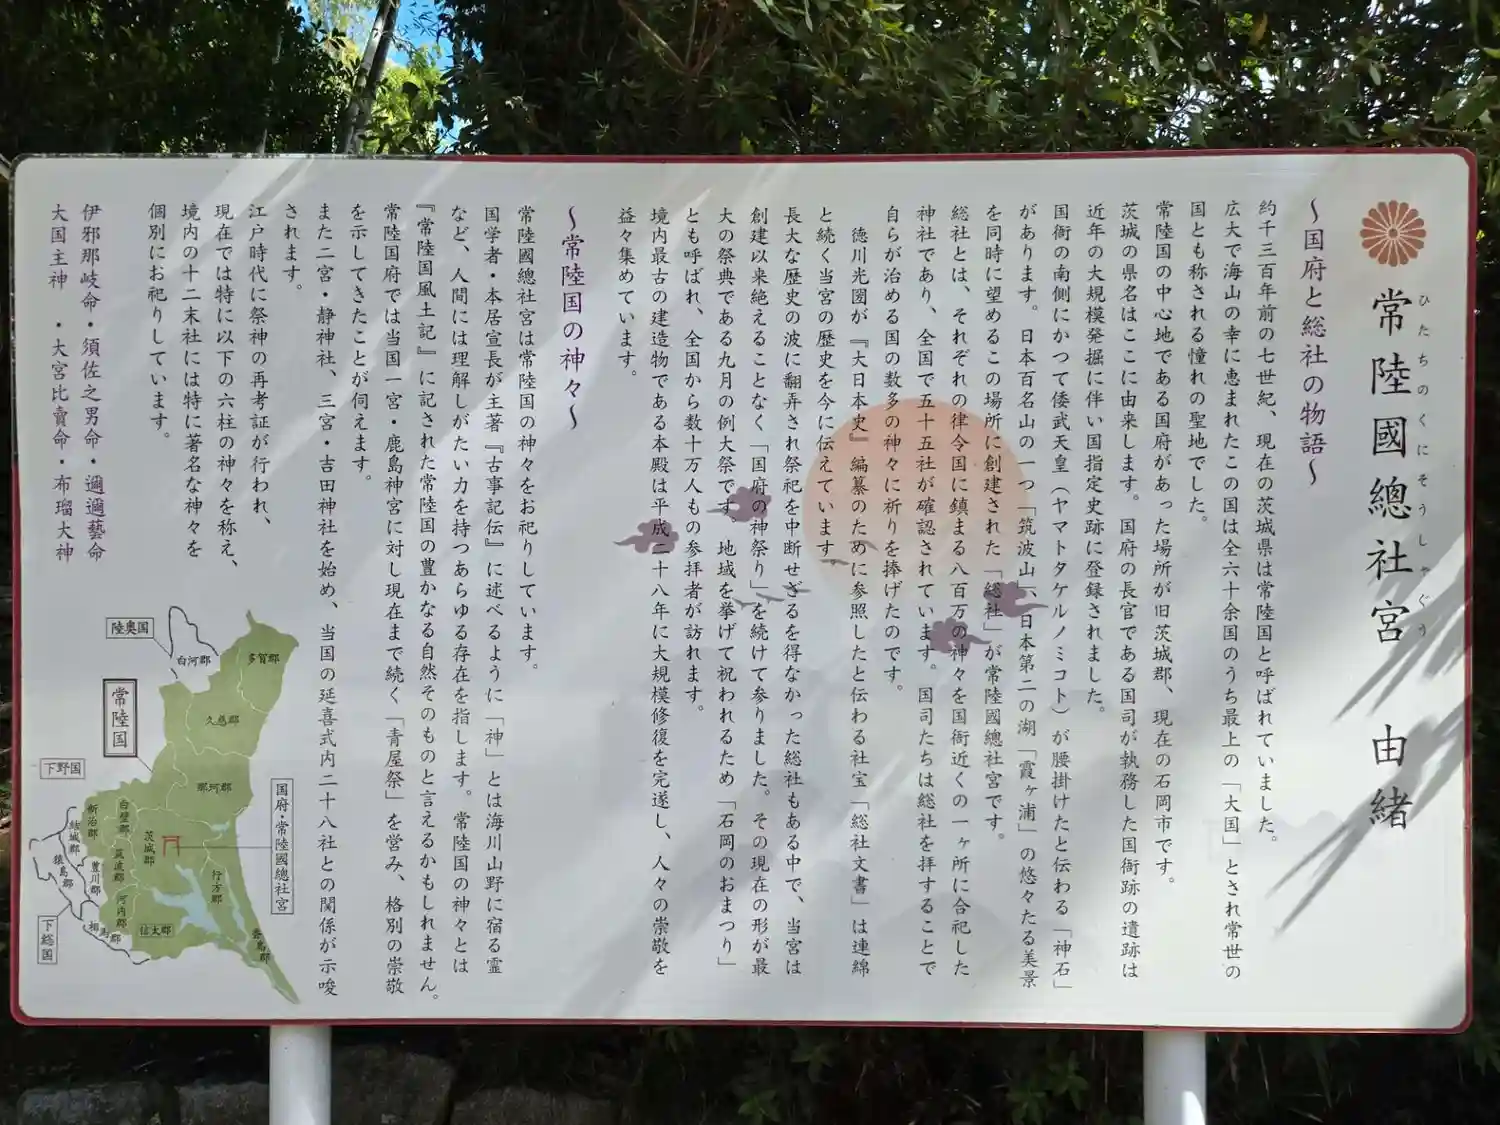 常陸國總社宮 由緒
ひたちのくにそうしゃぐう
～国府と総社の物語～
約千三百年前の七世紀、現在の茨城県は常陸国と呼ばれていました。
広大で海山の幸に恵まれたこの国は全六十余国のうち最上の「大国」とされ常世の
国とも称される憧れの聖地でした。
常陸国の中心地である国府があった場所が旧茨城郡、現在の石岡市です。
茨城の県名はここに由来します。国府の長官である国司が執務した国衙跡の遺跡は
近年の大規模発掘に伴い国指定史跡に登録されました。
国衙の南側にかつて倭武天皇（ヤマトタケルノミコト）が腰掛けたと伝わる「神石」
があります。日本百名山の一つ「筑波山」、日本第二の湖「霞ヶ浦」の悠々たる美景
を同時に望めるこの場所に創建された「総社」が常陸國總社宮です。
総社とは、それぞれの律令国に鎮まる八百万の神々を国衙近くの一ヶ所に合祀した
神社であり、全国で五十五社が確認されています。国司たちは総社を拝することで
自らが治める国の数多の神々に祈りを捧げたのです。
徳川光圀が『大日本史』編纂のために参照したと伝わる社宝「総社文書」は連綿
と続く当宮の歴史を今に伝えています。
長大な歴史の波に翻弄され祭祀を中断せざるを得なかった総社もある中で、当宮は
創建以来絶えることなく「国府の神祭り」を続けて参りました。その現在の形が最
大の祭典である九月の例大祭です。地域を挙げて祝われるため「石岡のおまつり」
とも呼ばれ、全国から数十万人もの参拝者が訪れます。
境内最古の建造物である本殿は平成二十八年に大規模修復を完遂し、人々の崇敬を
益々集めています。
～常陸国の神々～
常陸國總社宮は常陸国の神々をお祀りしています。
国学者・本居宣長が主著『古事記伝』に述べるように「神」とは海川山野に宿る霊
など、人間には理解しがたい力を持つあらゆる存在を指します。常陸国の神々とは
『常陸国風土記』に記された常陸国の豊かなる自然そのものと言えるかもしれません。
常陸国府では当国一宮・鹿島神宮に対し現在まで続く「青屋祭」を営み、格別の崇敬
を示してきたことが伺えます。
また二宮・静神社、三宮・吉田神社を始め、当国の延喜式内二十八社との関係が示唆
されます。
江戸時代に祭神の再考証が行われ、
現在では特に以下の六柱の神々を称え、
境内の十二末社には特に著名な神々を
個別にお祀りしています。
伊邪那岐命・須佐之男命・邇邇藝命
大国主神 ・大宮比賣命・布瑠大神
陸奥国
白河郡
多賀郡
常陸国
久慈郡
下野国
那珂郡
国府・常陸國總社宮
新治郡
白壁郡
茨城郡
結城郡
筑波郡
猿島郡
豊川郡
行方郡
河内郡
相馬郡
信太郡
下総国
鹿島郡